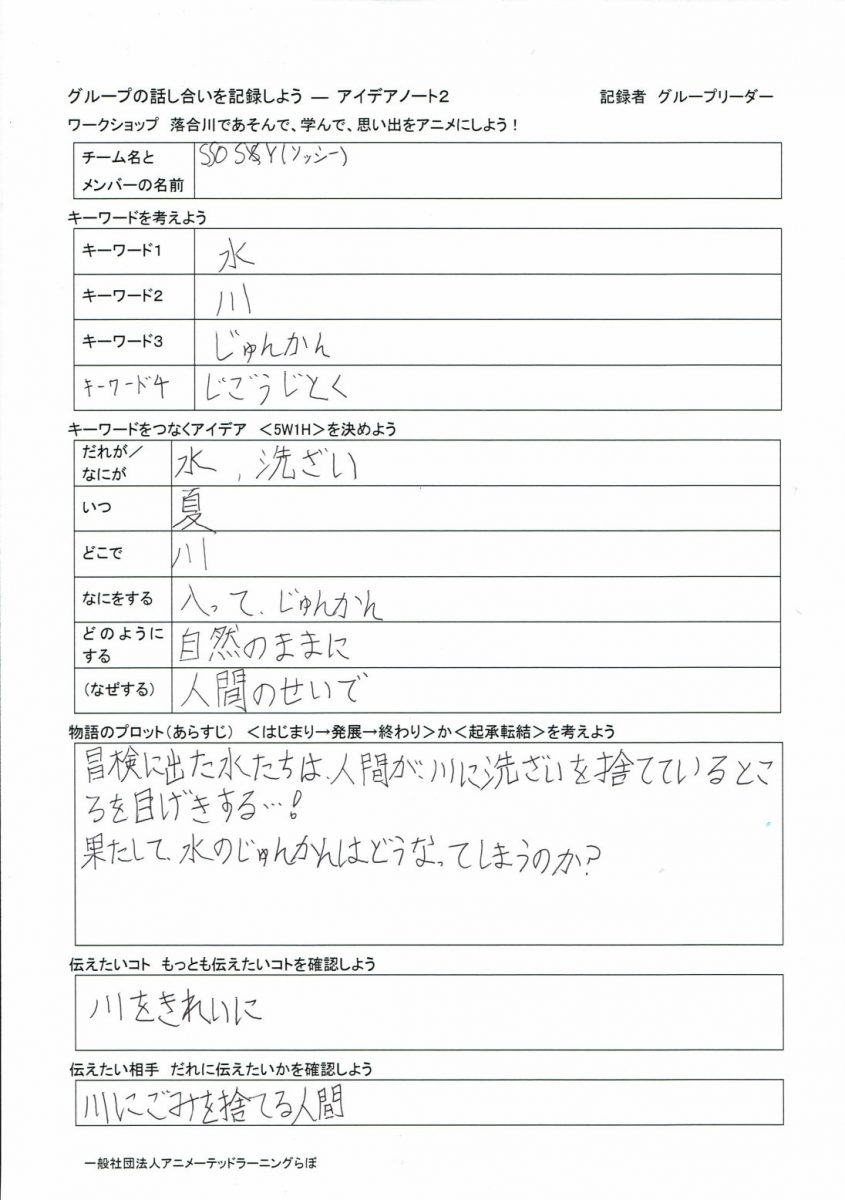 グループの話し合いを記録しよう ― アイデアノート2　記録者　グループリーダー
ワークショップ　落合川であそんで、学んで、思い出をアニメにしよう！
チーム名と
メンバーの名前
(ソッシー)
キーワードを考えよう
キーワード1　水
キーワード2　川
キーワード3　じゅんかん
キーワード4　じごうじとく
キーワードをつなくアイデア　＜5W1H＞を決めよう
だれが／
なにが　水，洗ざい
いつ　夏
どこで　川
なにをする　入って、じゅんかん
どのように
する　自然のままに
（なぜする）　人間のせいで
物語のプロット（あらすじ）　＜はじまり→発展→終わり＞か＜起承転結＞を考えよう
冒検に出た水たちは、人間が、川に洗ざいを捨てているとこ
ろを目げきする…！
果たして、水のじゅんかんはどうなってしまうのか？
伝えたいコト　もっとも伝えたいコトを確認しよう
川をきれいに
伝えたい相手　だれに伝えたいかを確認しよう
川にごみを捨てる人間
一般社団法人アニメーテッドラーニングらぼ